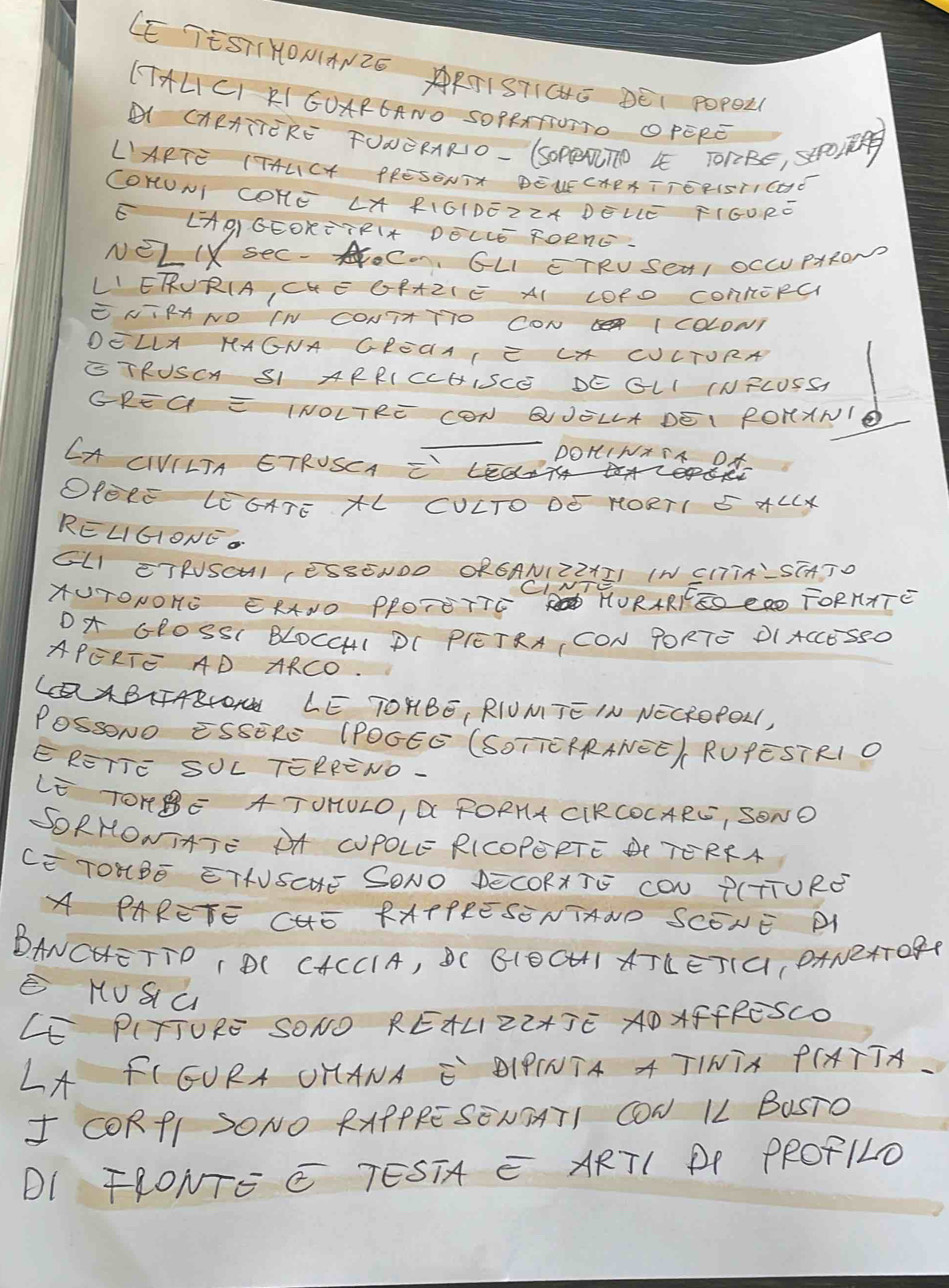 LE TESTIMONIANZE ARTISTICHE DEI POPOLI
ITALICI RIGUARGANO SOPRATTUTTO OPERE
DI CARATTERE FUNERARIO - (SOPRATUTTO LE TOMBE, SEPOLTURE)
L'ARTE ITALICA PRESENTA DELLE CARATTERISTICHE
COMUNI COME LA RIGIDEZZA DELLE FIGURE
E LA GEOMETRIA DELLE FORME.
NEL IX sec. A.C. GLI ETRUSCHI OCCUPARONO
L'ETRURIA, CHE GRAZIE AI LORO COMMERCI
ENTRANO IN CONTATTO CON I COLONI
DELLA MAGNA GRECIA, E LA CULTURA
ETRUSCA SI ARRICCHISCE DE GLI INFLUSSI
GRECI E INOLTRE CON QUELLA DEI ROMANI!
LA CIVILTA ETRUSCA È DOMINATA DA
OPERE LEGATE AL CULTO DE MORTI E ALLA
RELIGIONE.
GLI ETRUSCHI, ESSENDO ORGANIZZATI IN CITTÀ-STATO
AUTONOME ERANO PROTETTE CINTE MURARIE FORMATE
DA GROSSI BLOCCHI DI PIETRA, CON PORTE DI ACCESSO
APERTE AD ARCO.
LE TOMBE, RIUNITE IN NECROPOLI,
POSSONO ESSERE IPOGEE (SOTTERRANEE), RUPESTRI O
ERETTE SUL TERRENO -
LE TOMBE A TUMULO, DI FORMA CIRCOCARE, SONO
SORMONTATE DA CUPOLE RICOPERTE DI TERRA
LE TOMBE ETRUSCHE SONO DECORATE CON PITTURE
A PARETE CHE RAPPRESENTANO SCENE DI
BANCHETTO, DI CACCIA, DI GIOCHI ATLETICI, DANZATORI
E MUSICI
LE PITTURE SONO REALIZZATE AD AFFRESCO
LA FIGURA UMANA È DIPINTA A TINTA PIATTA -
I CORPI SONO RAPPRESENTATI CON IL BUSTO
DI FRONTE E TESTA E ARTI DI PROFILO